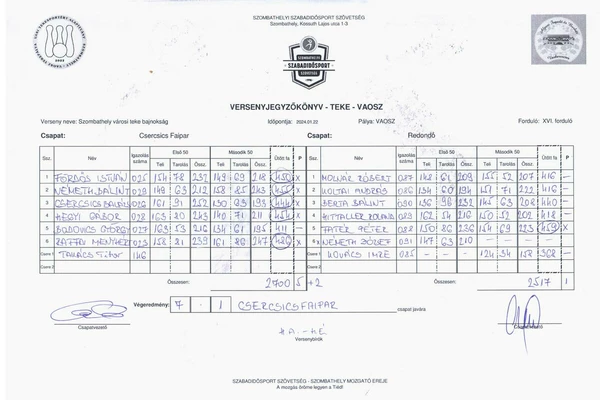 SZOMBATHELYI SZABADIDŐSPORT SZÖVETSÉG
Szombathely, Kossuth Lajos utca 1-3
SZOMBATHELYI
SZABADIDŐSPORT
SZÖVETSÉG
VERSENYJEGYZŐKÖNYV - TEKE - VAOSZ
Verseny neve: Szombathely városi teke bajnokság Időpontja: 2024.01.22 Pálya: VAOSZ Forduló: XVI. forduló
Csapat: Csercsics Faipar Csapat: Redondó
Ssz. Név Igazolás száma Első 50 Második 50 Ütött fa P Ssz. Név Igazolás száma Első 50 Második 50 Ütött fa P
Teli Tarolás Össz. Teli Tarolás Össz. Teli Tarolás Össz. Teli Tarolás Össz.
1 FORDÓS ISTVÁN 025 154 78 232 149 69 218 450 X 1 MOLNÁR RÓBERT 087 148 61 209 155 52 207 416 –
2 NÉMETH BÁLINT 029 149 63 212 158 85 243 455 X 2 KOLTAI ANDRÁS 086 134 60 194 151 71 222 416 –
3 CSERCSICS BALÁZS 026 161 91 252 130 63 193 444 X 3 BERTA BÁLINT 090 136 96 232 145 63 208 440 –
4 HEGYI GÁBOR 028 163 80 243 140 71 211 454 X 4 HITTALLER ROLAND 089 162 54 216 150 52 202 418 –
5 BODOVICS GYÖRGY 027 163 53 216 134 61 195 411 – 5 TATÉR PÉTER 088 150 86 236 154 69 223 459 X
6 MENYHÉRT 023 158 81 239 161 86 247 486 X NÉMETH JÓZSEF 031 147 63 210 – – – –
Csere 1 TAKÁCS Tibor 146 Csere 1 KOVÁCS IMRE 085 – – – 124 34 158 368 –
Csere 2 Csere 2
Összesen: 2700 5 +2 Összesen: 2517 1
Végeredmény: 7 - 1 CSERCSICS FAIPAR csapat javára
Csapatvezető
Csapatvezető
Versenybírók
SZABADIDŐSPORT SZÖVETSÉG - SZOMBATHELY MOZGATÓ EREJE
A mozgás öröme legyen a Tiéd!